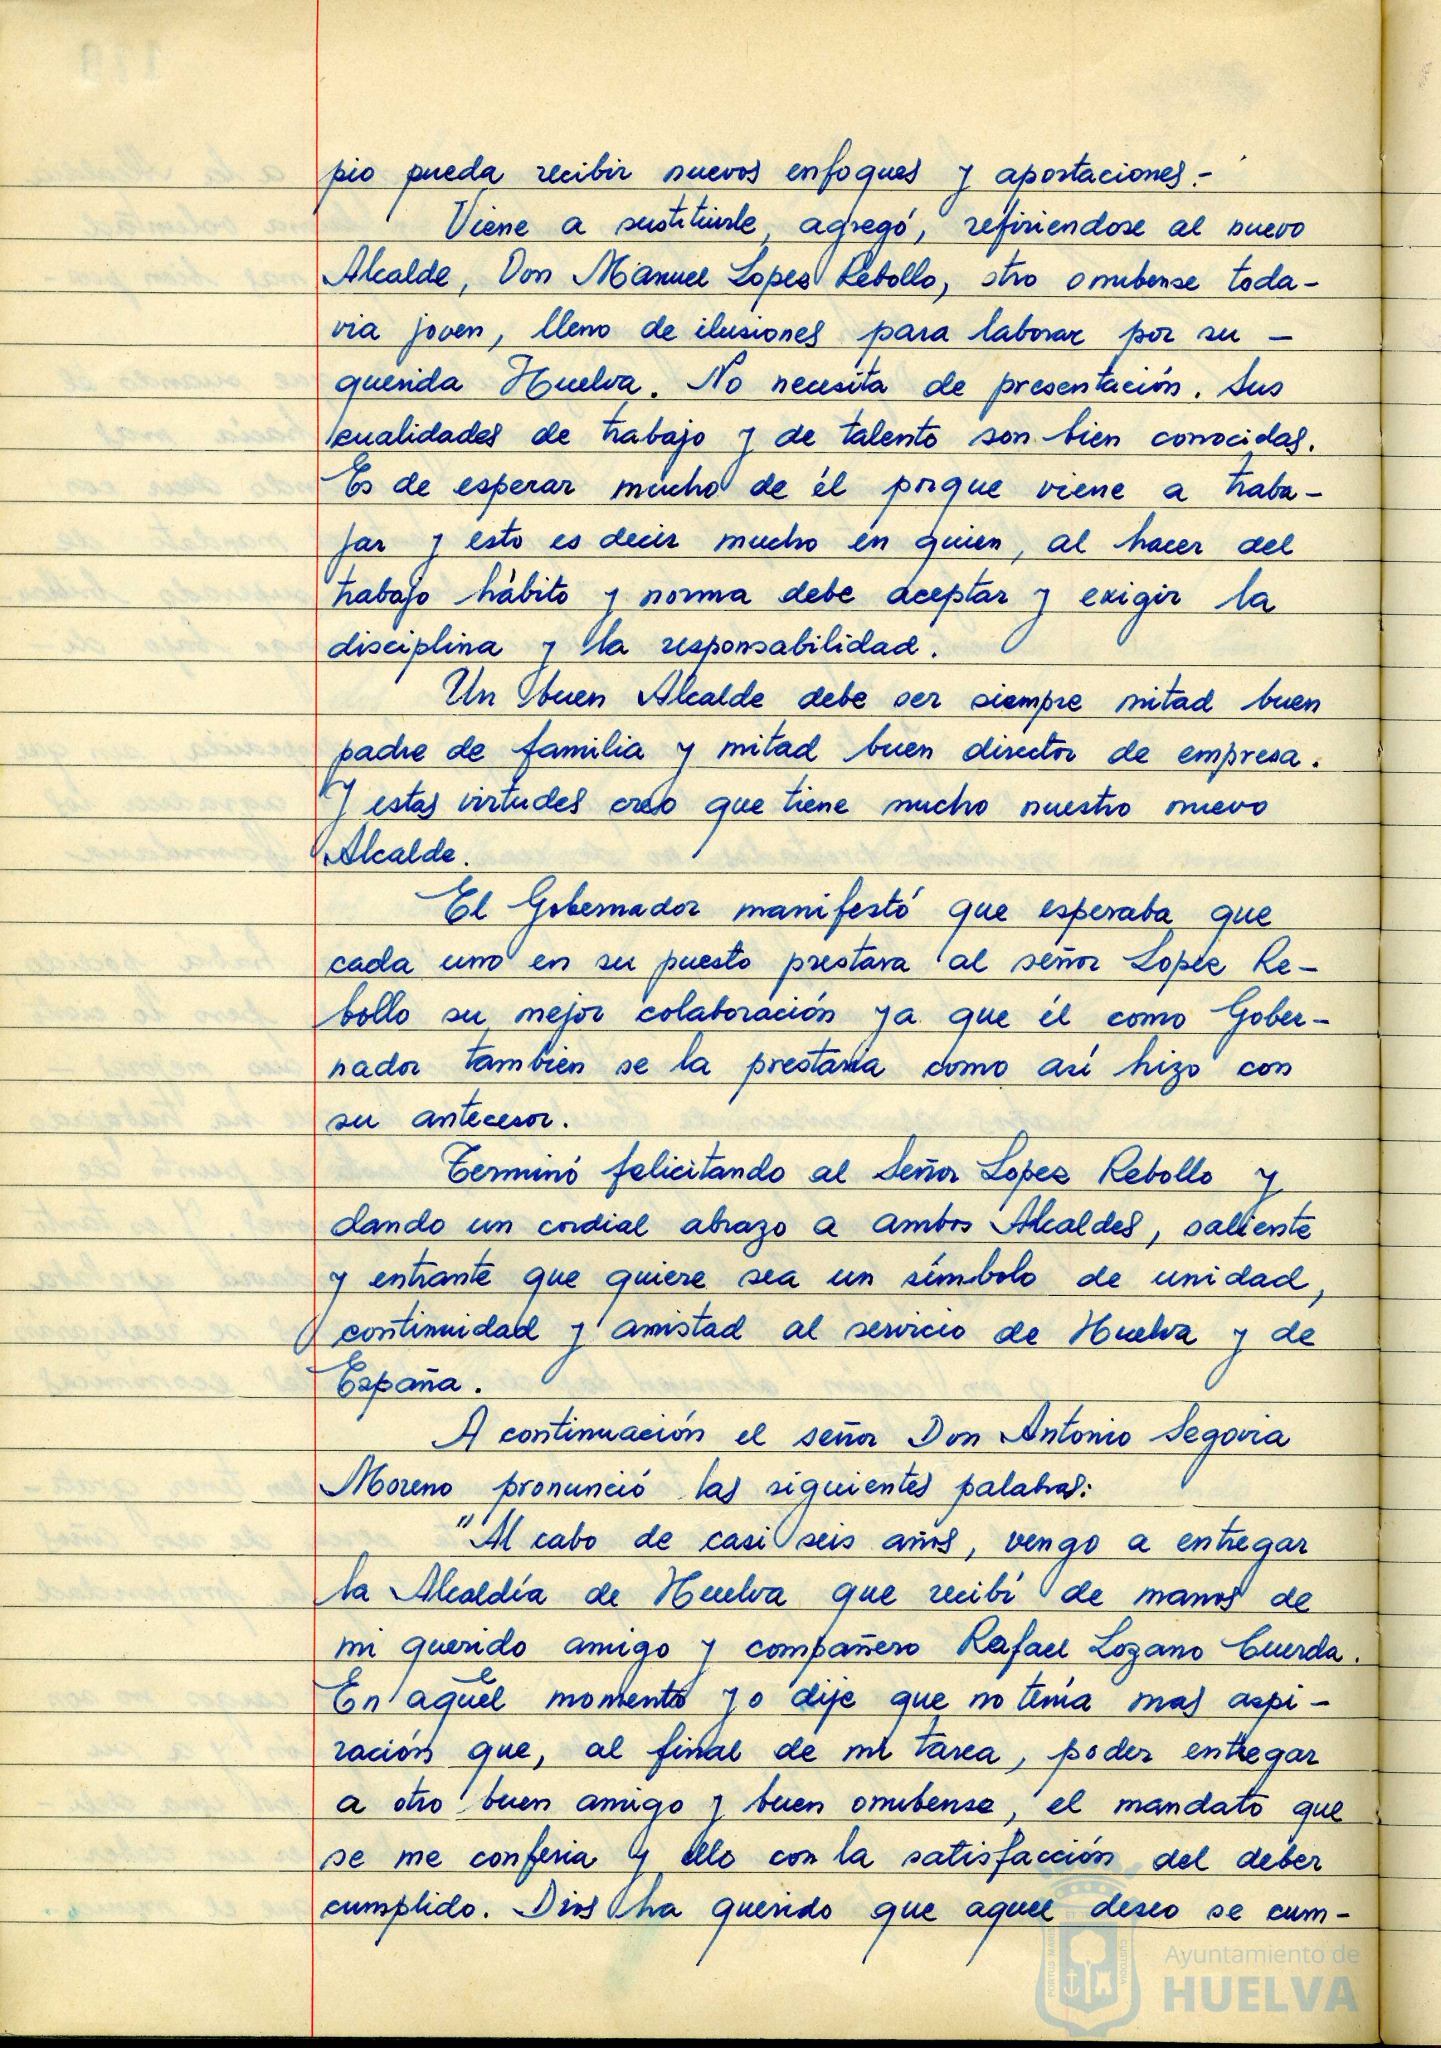 pio pueda recibir nuevos enfoques y aportaciones.-
Viene a sustituirle, agregó, refiriendose al nuevo
Alcalde, Don Manuel Lopez Rebollo, otro onubense toda-
via joven, lleno de ilusiones para laborar por su -
querida Huelva. No necesita de presentación. Sus
cualidades de trabajo y de talento son bien conocidas.
Es de esperar mucho de él porque viene a traba-
jar y esto es decir mucho en quien, al hacer del
trabajo hábito y norma debe aceptar y exigir la
disciplina y la responsabilidad.
Un buen Alcalde debe ser siempre mitad buen
padre de familia y mitad buen director de empresa.
Y estas virtudes creo que tiene mucho nuestro nuevo
Alcalde.
El Gobernador manifestó que esperaba que
cada uno en su puesto prestara al señor Lopez Re-
bollo su mejor colaboración ya que él como Gober-
nador tambien se la prestaria como así hizo con
su antecesor.
Terminó felicitando al Señor Lopez Rebollo y
dando un cordial abrazo a ambos Alcaldes, saliente
y entrante que quiere sea un símbolo de unidad,
continuidad y amistad al servicio de Huelva y de
España.
A continuación el señor Don Antonio Segovia
Moreno pronunció las siguientes palabras:
"Al cabo de casi seis años, vengo a entregar
la Alcaldía de Huelva que recibí de manos de
mi querido amigo y compañero Rafael Lozano Cuerda.
En aquél momento yo dije que no tenía mas aspi-
ración que, al final de mi tarea, poder entregar
a otro buen amigo y buen onubense, el mandato que
se me conferia y ello con la satisfacción del deber
cumplido. Dios ha querido que aquel deseo se cum-
Ayuntamiento de
HUELVA